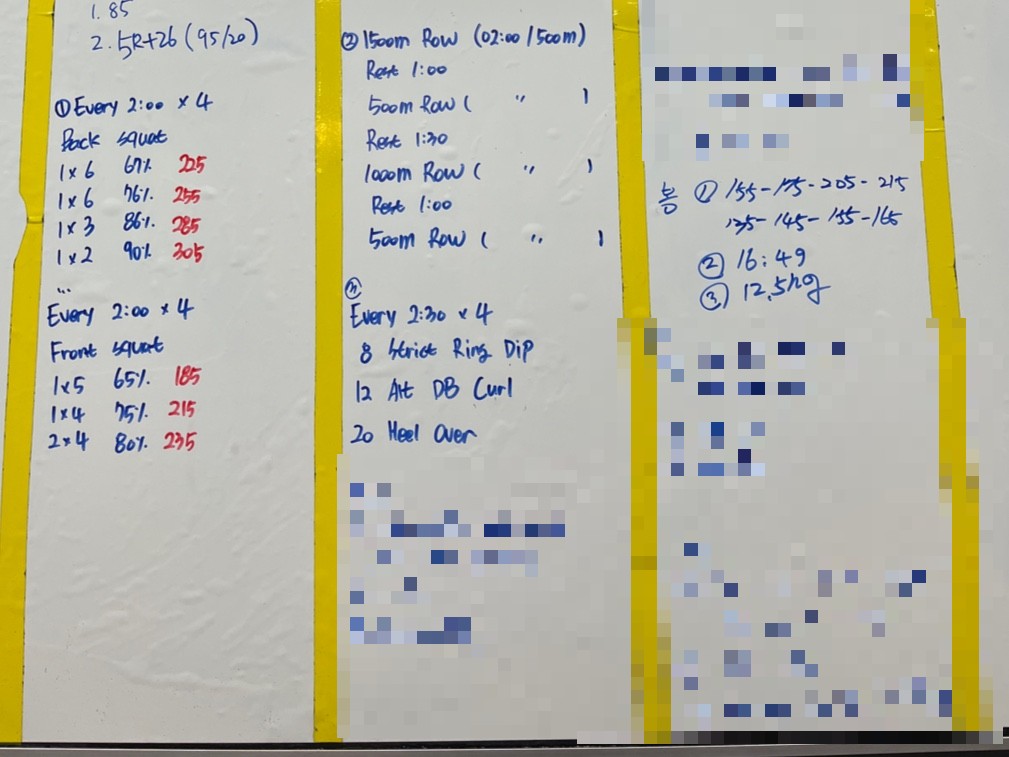 1. 85
2. 5R+26 (95/20)
① Every 2:00 × 4
Back squat
1 x 6 67% 225
1 x 6 76% 255
1 x 3 86% 285
1 x 2 90% 305
...
Every 2:00 × 4
Front squat
1 x 5 65% 185
1 x 4 75% 215
2 x 4 80% 235
② 1500m Row (02:00 / 500m)
Rest 1:00
500m Row ( " )
Rest 1:30
1000m Row ( " )
Rest 1:00
500m Row ( " )
Every 2:30 × 4
8 Strict Ring Dip
12 Alt DB Curl
20 Heel Over
봉 ① 155-175-205-215
135-145-155-165
② 16:49
③ 12.5kg